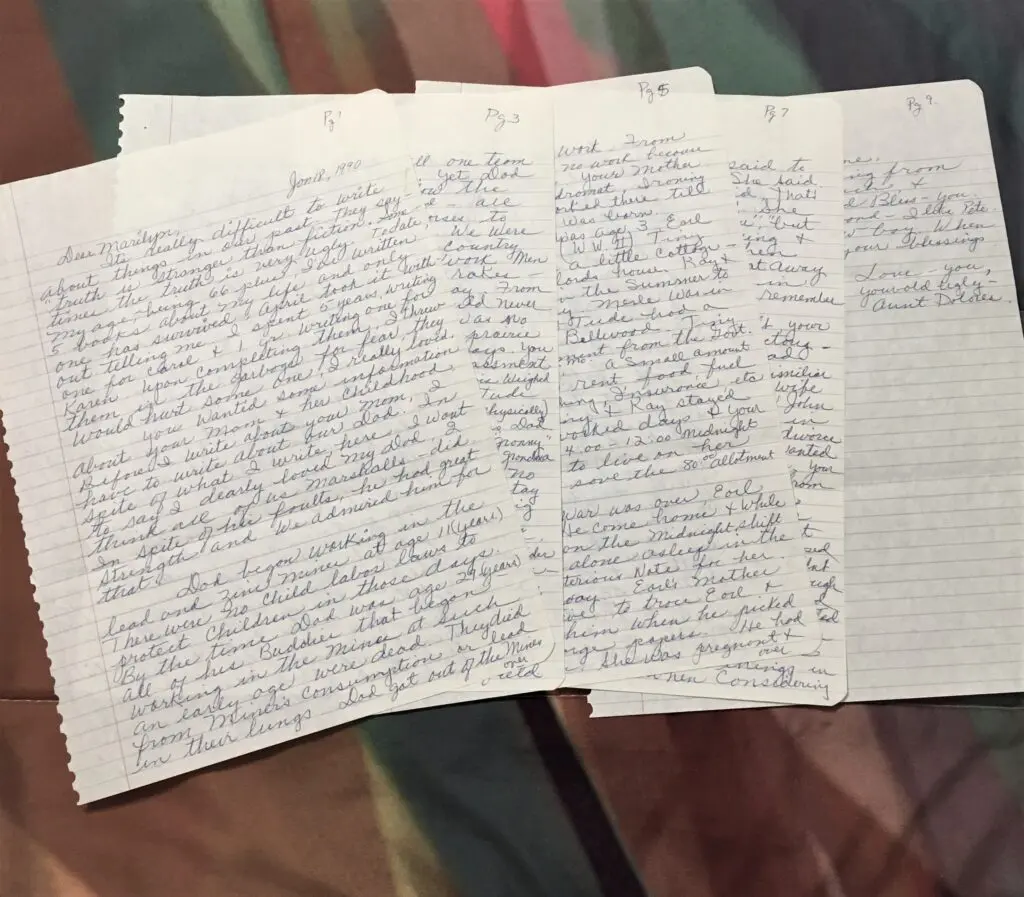 Pg 1
Jan 18, 1990
Dear Marilyn,
Its really difficult to write
about things in our past, They say
"Truth is stranger than fiction. Some
times the truth is very ugly. To date,
my age being 66 plus, I've written
5 books about my life and only
one has survived, April took it with
out telling me. I spent 5 years, writing
one for Carol & 1 yr. writing one for
Karen. Upon completing them, I threw
them in the garbage for fear, they
would hurt some one, I really loved.
You wanted some information
about your Mom & her childhood,
Before I write about your mom, I
have to write about our Dad. In
spite of what I write, here, I want
to say I dearly loved my Dad, I
think all of us Marshalls - did.
In spite of his faults, he had great
strength and we admired him for
that.
Dad began working in the
lead and zinc mines at age 11 (years)
There were no child labor laws to
protect children in those days.
By the time Dad was age 29 (years)
all of his Buddies that began
working in the mines at such
an early age were dead. They died
from Miners consumption or lead
in their lungs. Dad got out of the Mines
over
Pg 3
ll one team
yet Dad
the
- all
orses, to
We were
Country
work Men
rakes -
ay. From
did never
was no
prairie
ays. You
assment
Weighed
Tude
(physically)
Dad
"nonny"
Grandma
no
tay
ig
over
Pg 5
work - From
no work because
Your Mother
dromat, Ironing
orked there till
was born.
was age 3, Earl
(W.W.II) Tiny
a little Cottage -
lords house. Kay &
the Summer to
Merle Was in
Tude had a
Bellwood. Tiny
ment from the Govt.
a small amount
rent, food fuel
ing, Insurance, etc
& Kay stayed
worked days & your
4:00 - 12:00 Midnight
to live on her
save the 80.00 allotment
war was over, Earl
He come home & while
on the Midnight shift
alone asleep in the
terious Note for her.
away. Earl's Mother
to trace Earl &
him when he picked
rge papers. He had
She was pregnant &
over
Pg 7
said to
She said
That's
She
but
ing &
rem
at away
in
remember
your
ctory -
ady
imiliar
wife
John
in
divorce
wanted
your
from
t
sed
ent
ugh
d
ted
when Considering
Pg 9.
me.
ing from
&
Bless - You
ond - I like Pete.
boy. When
your blessings
Love - you,
your old ugly -
Aunt Dolores